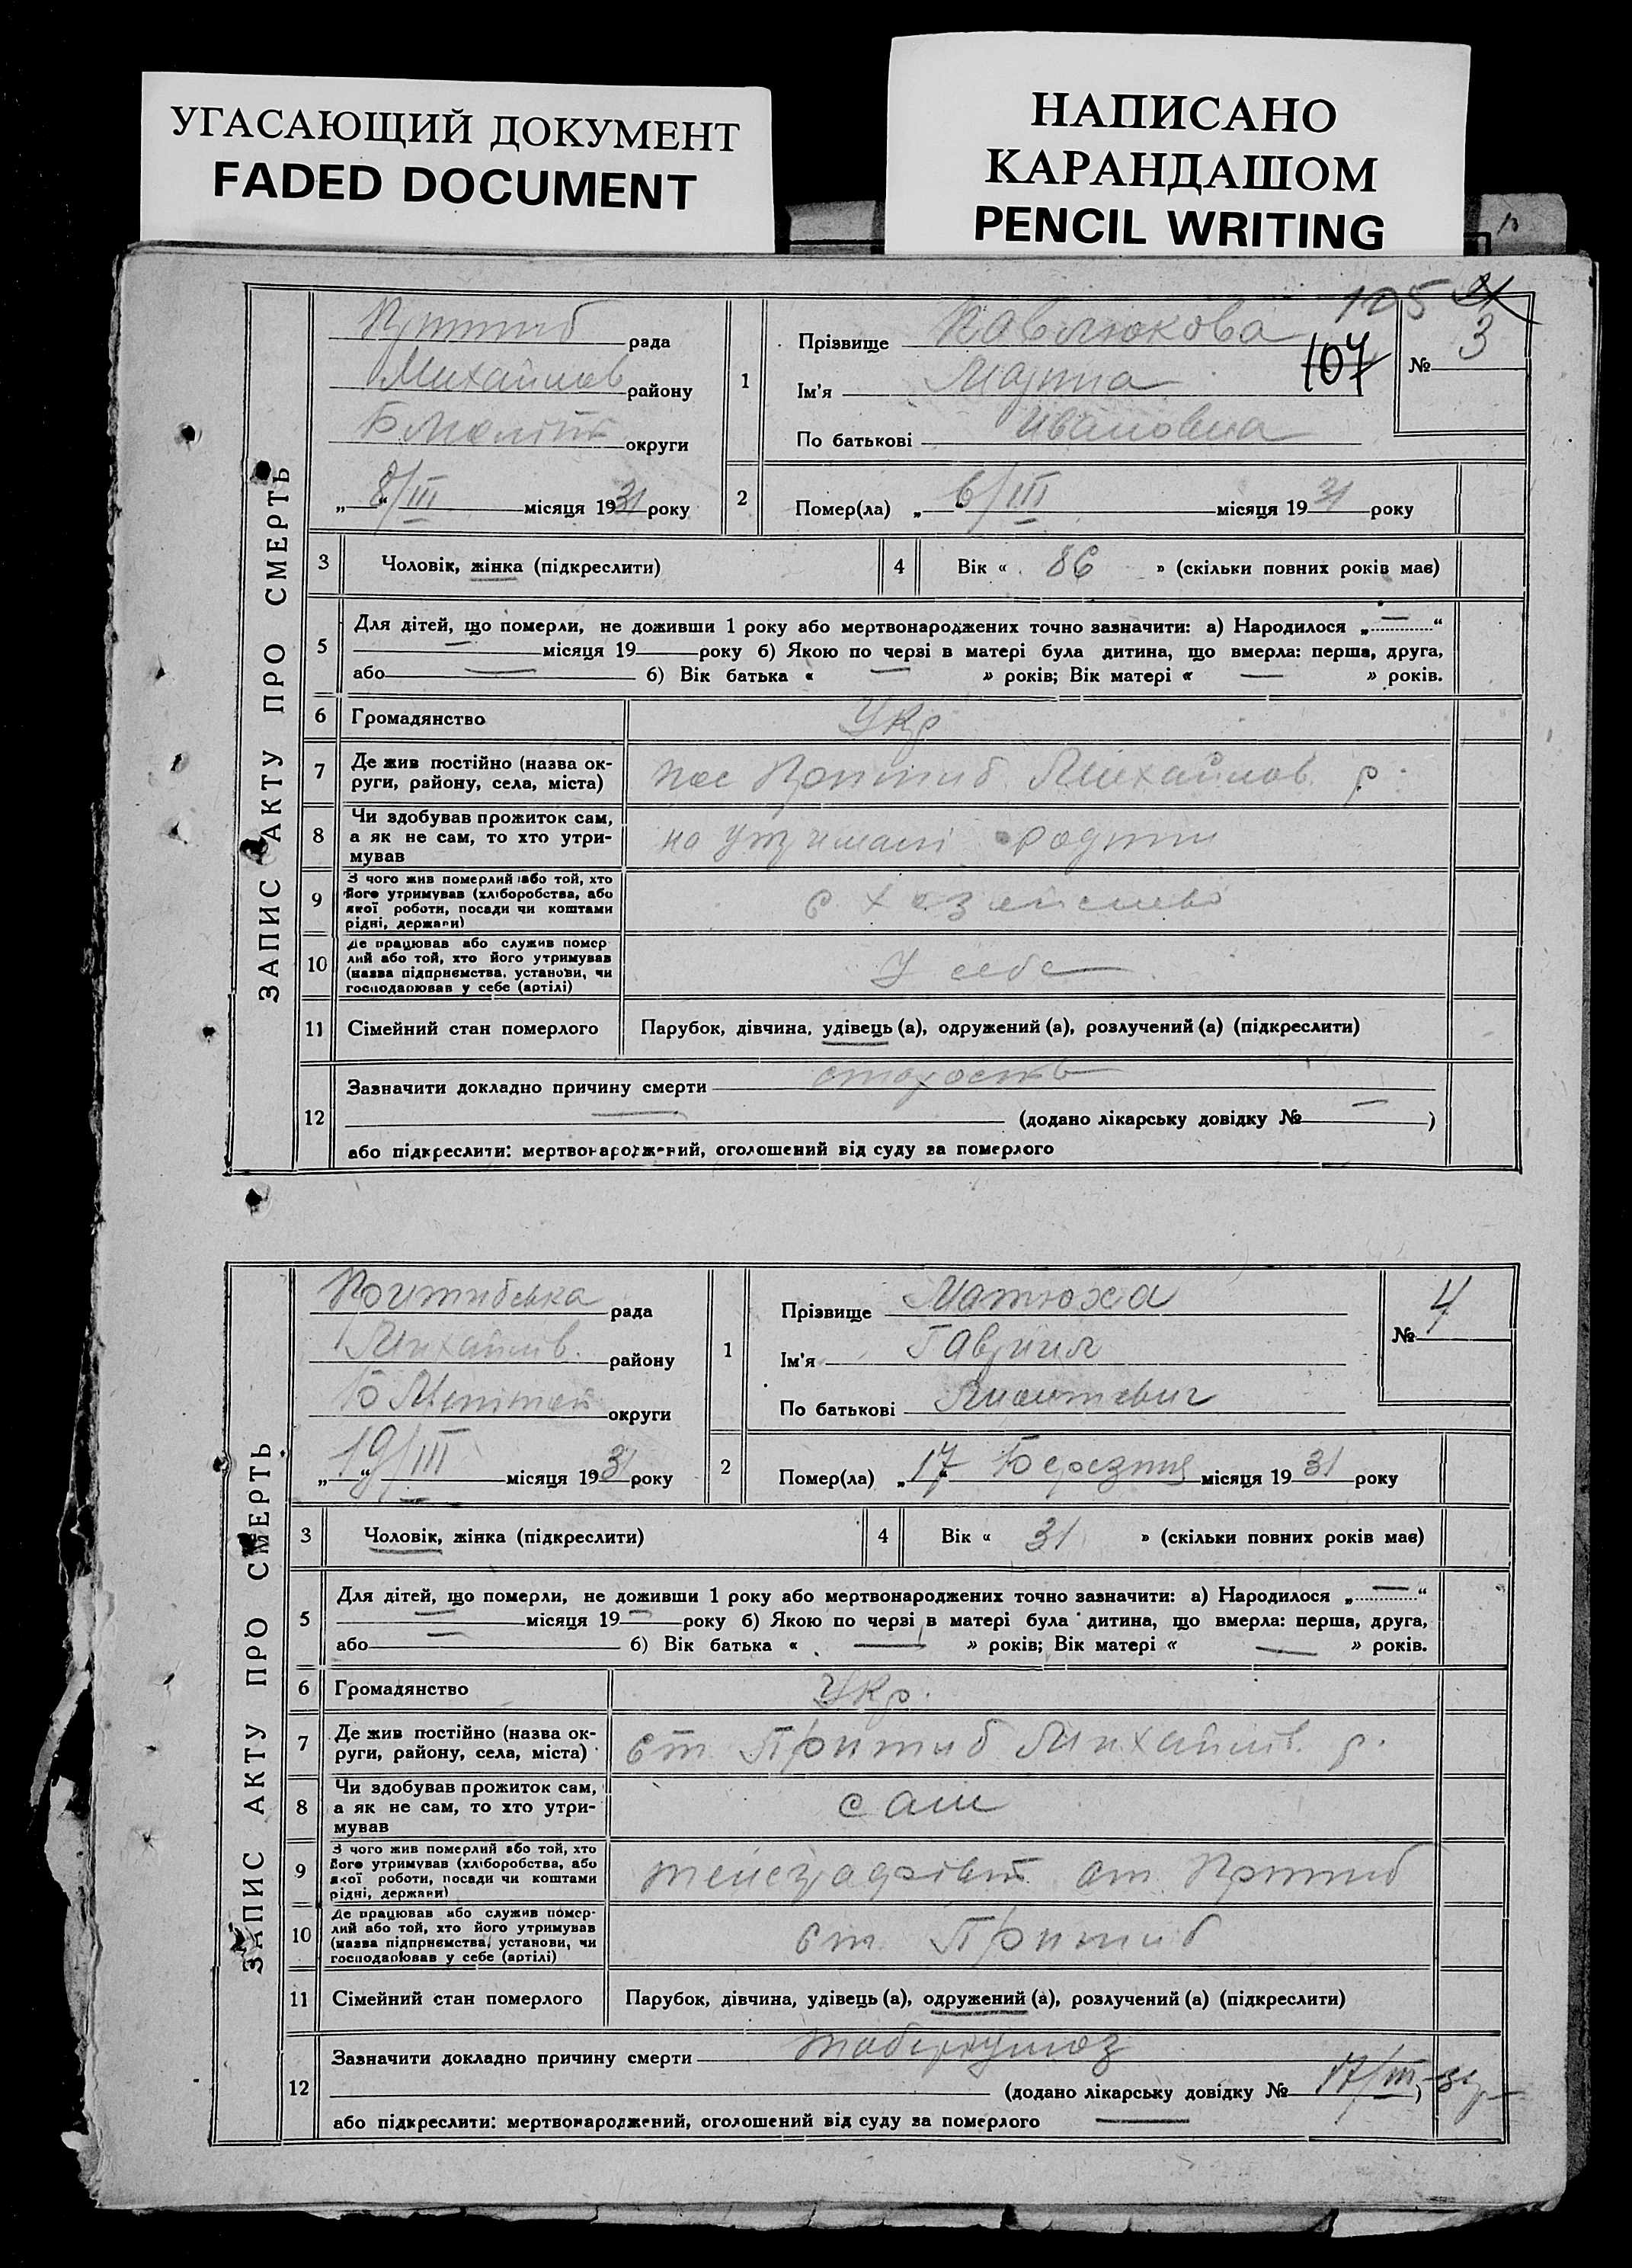 УГАСАЮЩИЙ ДОКУМЕНТ
FADED DOCUMENT
НАПИСАНО
КАРАНДАШОМ
PENCIL WRITING
105
107
ЗАПИС АКТУ ПРО СМЕРТЬ
Пришиб рада
Михайлов району
Б Меліт округи
„ 8/III “ місяця 1931 року
1
Прізвище Павлюкова
Ім'я Марта
По батькові Ивановна
№ 3
2 Помер(ла) „ 6/III місяця 1931 року
3 Чоловік, жінка (підкреслити)
4 Вік « 86 » (скільки повних років має)
5 Для дітей, що померли, не доживши 1 року або мертвонароджених точно зазначити: а) Народилося „ — “
— місяця 19 року б) Якою по черзі в матері була дитина, що вмерла: перша, друга,
або — б) Вік батька « — » років; Вік матері « — » років.
6 Громадянство Укр
7 Де жив постійно (назва ок-
руги, району, села, міста) пос Пришиб Михайлов. р.
8 Чи здобував прожиток сам,
а як не сам, то хто утри-
мував
на утримані родини
9 З чого жив померлий або той, хто
його утримував (хліборобства, або
якої роботи, посади чи коштами
рідні, держави)
с хозяйство
10 Де працював або служив помер
лий або той, хто його утримував
(назва підприємства, установи, чи
господарював у себе (артілі)
У себе
11 Сімейний стан померлого Парубок, дівчина, удівець (а), одружений (а), розлучений (а) (підкреслити)
12 Зазначити докладно причину смерти старость
— (додано лікарську довідку № — )
або підкреслити: мертвонароджений, оголошений від суду за померлого
ЗАПИС АКТУ ПРО СМЕРТЬ
Пришибська рада
Михайлів. району
Б Меліт округи
„ 19/III “ місяця 1931 року
1
Прізвище Матюха
Ім'я Гавриил
По батькові
№ 4
2 Помер(ла) „ 17 Березня місяця 1931 року
3 Чоловік, жінка (підкреслити)
4 Вік « 31 » (скільки повних років має)
5 Для дітей, що померли, не доживши 1 року або мертвонароджених точно зазначити: а) Народилося „ — “
— місяця 19 — року б) Якою по черзі в матері була дитина, що вмерла: перша, друга,
або — б) Вік батька « — » років; Вік матері « — » років.
6 Громадянство Укр.
7 Де жив постійно (назва ок-
руги, району, села, міста) ст. Пришиб Михайлів. р.
8 Чи здобував прожиток сам,
а як не сам, то хто утри-
мував
сам
9 З чого жив померлий або той, хто
його утримував (хліборобства, або
якої роботи, посади чи коштами
рідні, держави)
телеграфіст ст. Пришиб
10 Де працював або служив помер-
лий або той, хто його утримував
(назва підприємства, установи, чи
господарював у себе (артілі)
ст. Пришиб
11 Сімейний стан померлого Парубок, дівчина, удівець (а), одружений (а), розлучений (а) (підкреслити)
12 Зазначити докладно причину смерти
(додано лікарську довідку № 17/III-31 )
або підкреслити: мертвонароджений, оголошений від суду за померлого —